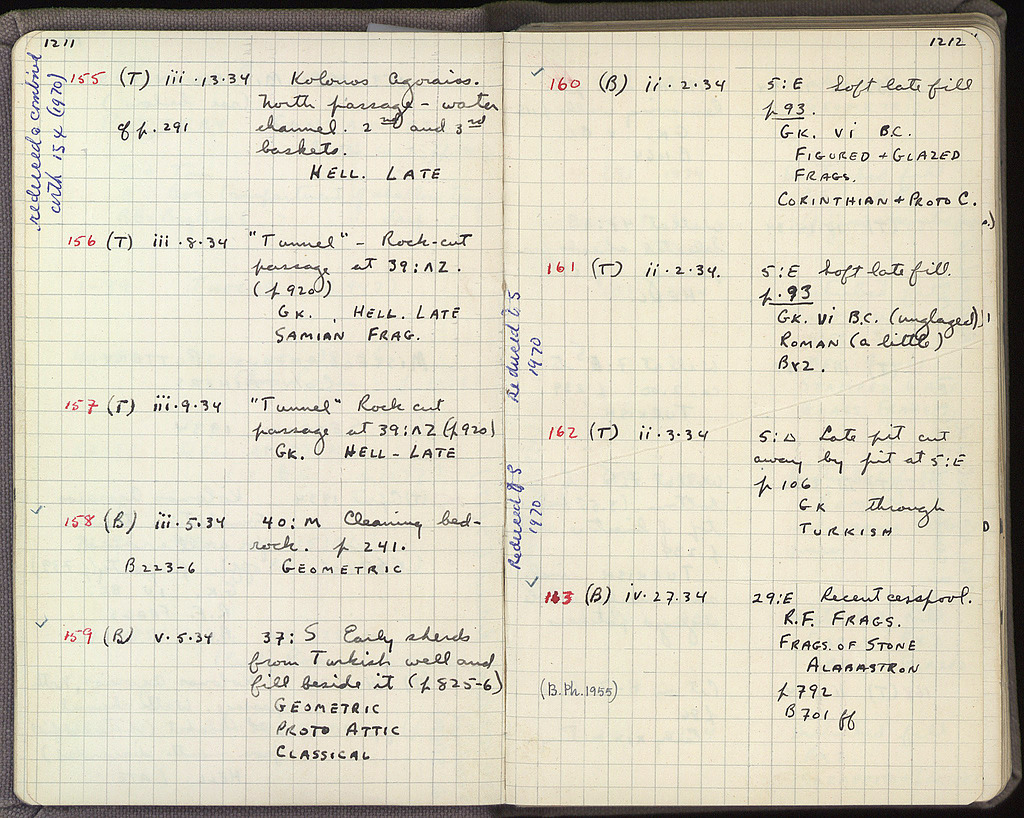 1211
reduced & combined
with 154 (1970)
155 (T) iii·13·34 Kolonos Agoraios.
North passage - water
cf p. 291 channel. 2nd and 3rd
baskets.
HELL. LATE
156 (T) iii·8·34 "Tunnel" - Rock-cut
passage at 39:ΛΖ.
(p 920)
GK., HELL. LATE
SAMIAN FRAG.
157 (T) iii·9·34 "Tunnel" Rock cut
passage at 39:ΛΖ (p920)
GK. HELL-LATE
158 (B) iii·5·34 40: M Cleaning bed-
rock. p 241.
B223-6 GEOMETRIC
159 (B) v·5·34 37: S Early sherds
from Turkish well and
fill beside it (p 825-6)
GEOMETRIC
PROTO ATTIC
CLASSICAL
1212
160 (B) ii·2·34 5:E Soft late fill
p 93.
GK. vi B.C.
FIGURED + GLAZED
FRAGS.
CORINTHIAN + PROTO C.
161 (T) ii·2·34. 5:E Soft late fill.
p. 93
GK. vi B.C. (unglazed)
ROMAN (a little)
BYZ.
Reduced
1970
162 (T) ii·3·34 5:Δ Late pit cut
away by pit at 5:E
p 106
GK through
TURKISH
Reduced
1970
163 (B) iv·27·34 29:E Recent cesspool.
R.F. FRAGS.
FRAGS. OF STONE
ALABASTRON
(B.Ph.1955) p 792
B 701 ff